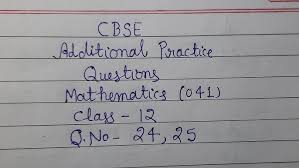 CBSE
Additional Practice
Questions
Mathematics (041)
Class - 12
Q.No - 24, 25